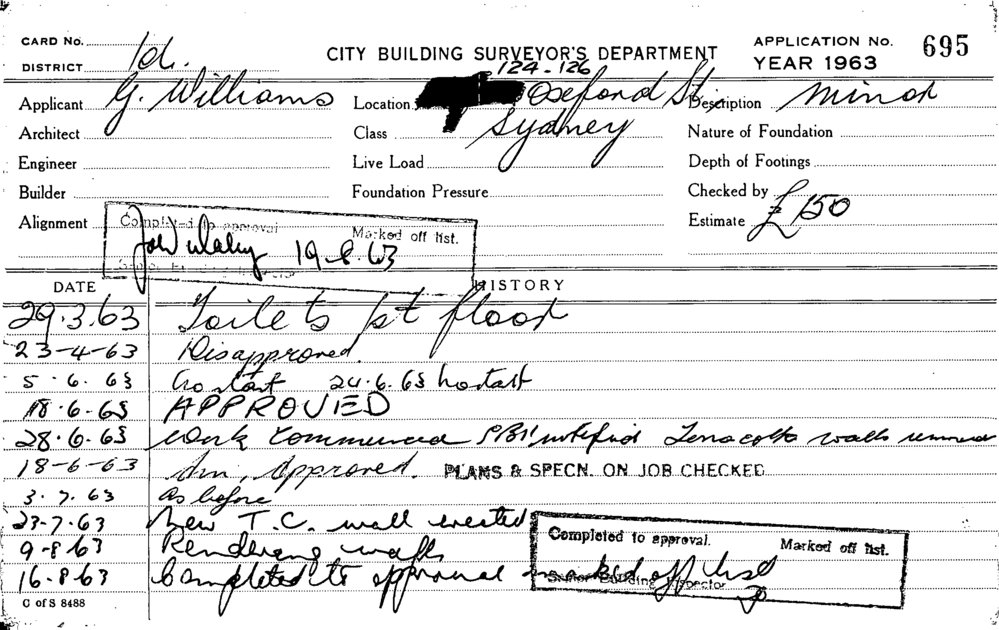 CARD No.
DISTRICT 1d.
CITY BUILDING SURVEYOR'S DEPARTMENT
APPLICATION No. 695
YEAR 1963
Applicant G. Williams
Location 124-126 Oxford St,
Sydney
Description Minor
Architect
Class
Nature of Foundation
Engineer
Live Load
Depth of Footings
Builder
Foundation Pressure
Checked by
Alignment
Estimate £150
Completed to approval Marked off list.
19-8-63
DATE HISTORY
29.3.63 Toilets 1st floor
23-4-63 Disapproved.
5.6.63 No start 24.6.63 no start
18.6.63 APPROVED
28.6.63 Work commenced PBI notified Terracotta walls
18-6-63 Am. Approved. PLANS & SPECN. ON JOB CHECKED
3.7.63 As before
23-7-63 New T.C. wall erected
9-8-63 Rendering walls
16.8.63 Completed to approval marked off list
Completed to approval. Marked off list.
Senior Building Inspector
C of S 8488